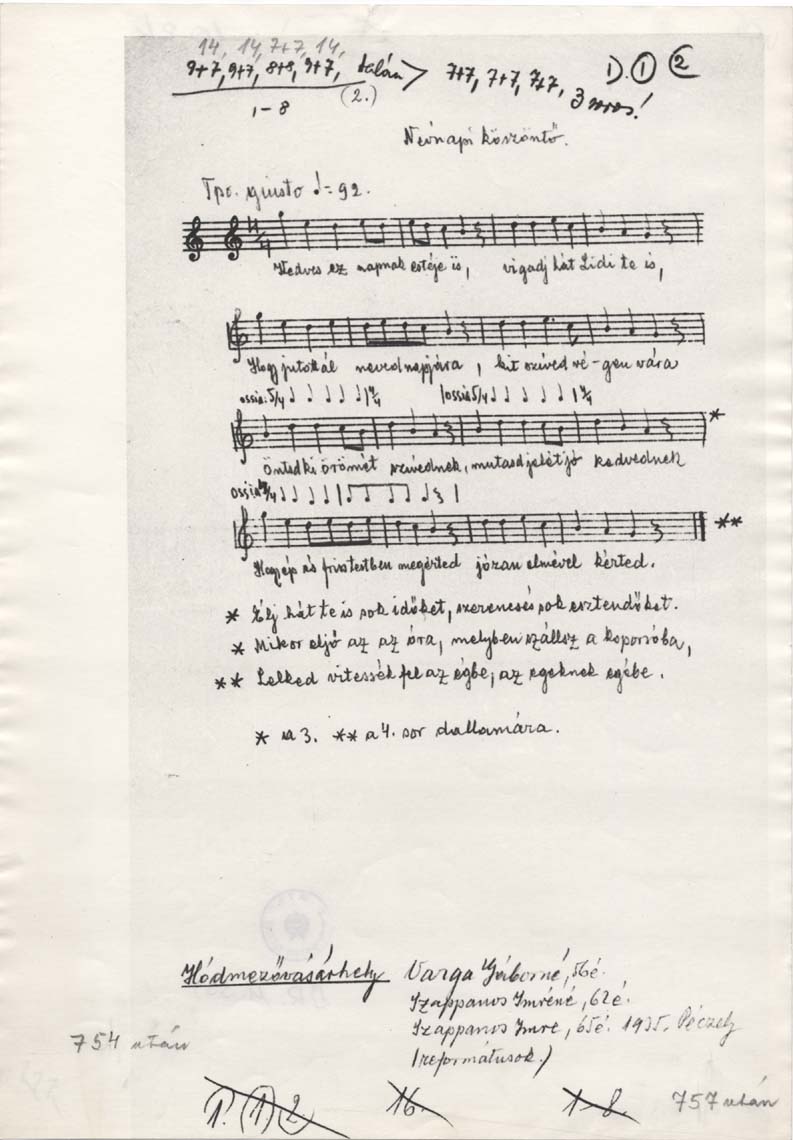 14, 14, 7+7, 14,
9+7, 9+7, 8+8, 9+7, talán > 7+7, 7+7, 7+7, 3 soros! D. 1 2
1-8 (2.)
Névnapi köszöntő.
Tpo. giusto ♩= 92.
4/4
Kedves ez napnak estéje is, vigadj hát Lidi te is,
Hogy jutottál nevednapjára, kit szíved ré-gen vára
ossia: 5/4 | 4/4 | ossia 5/4 | 4/4
Öntsd ki örömét szívednek, mutasd jelét jó kedvednek *
ossia 4/4
Hogy ép és friss testben megérted józan elmével kérted. **
* Élj hát te is sok időket, szerencsés sok esztendőket.
* Mikor eljő az az óra, melyben szállsz a koporsóba,
** Lelked vitessék fel az égbe, az egeknek egébe.
* a 3. ** a 4. sor dallamára.
Hódmezővásárhely Varga Gáborné, 56é.
Szappanos Imréné, 62é.
Szappanos Imre, 65é. 1935. Péczely
(reformátusok.)
754 után
1. (1) 2 16. 1-8. 757 után